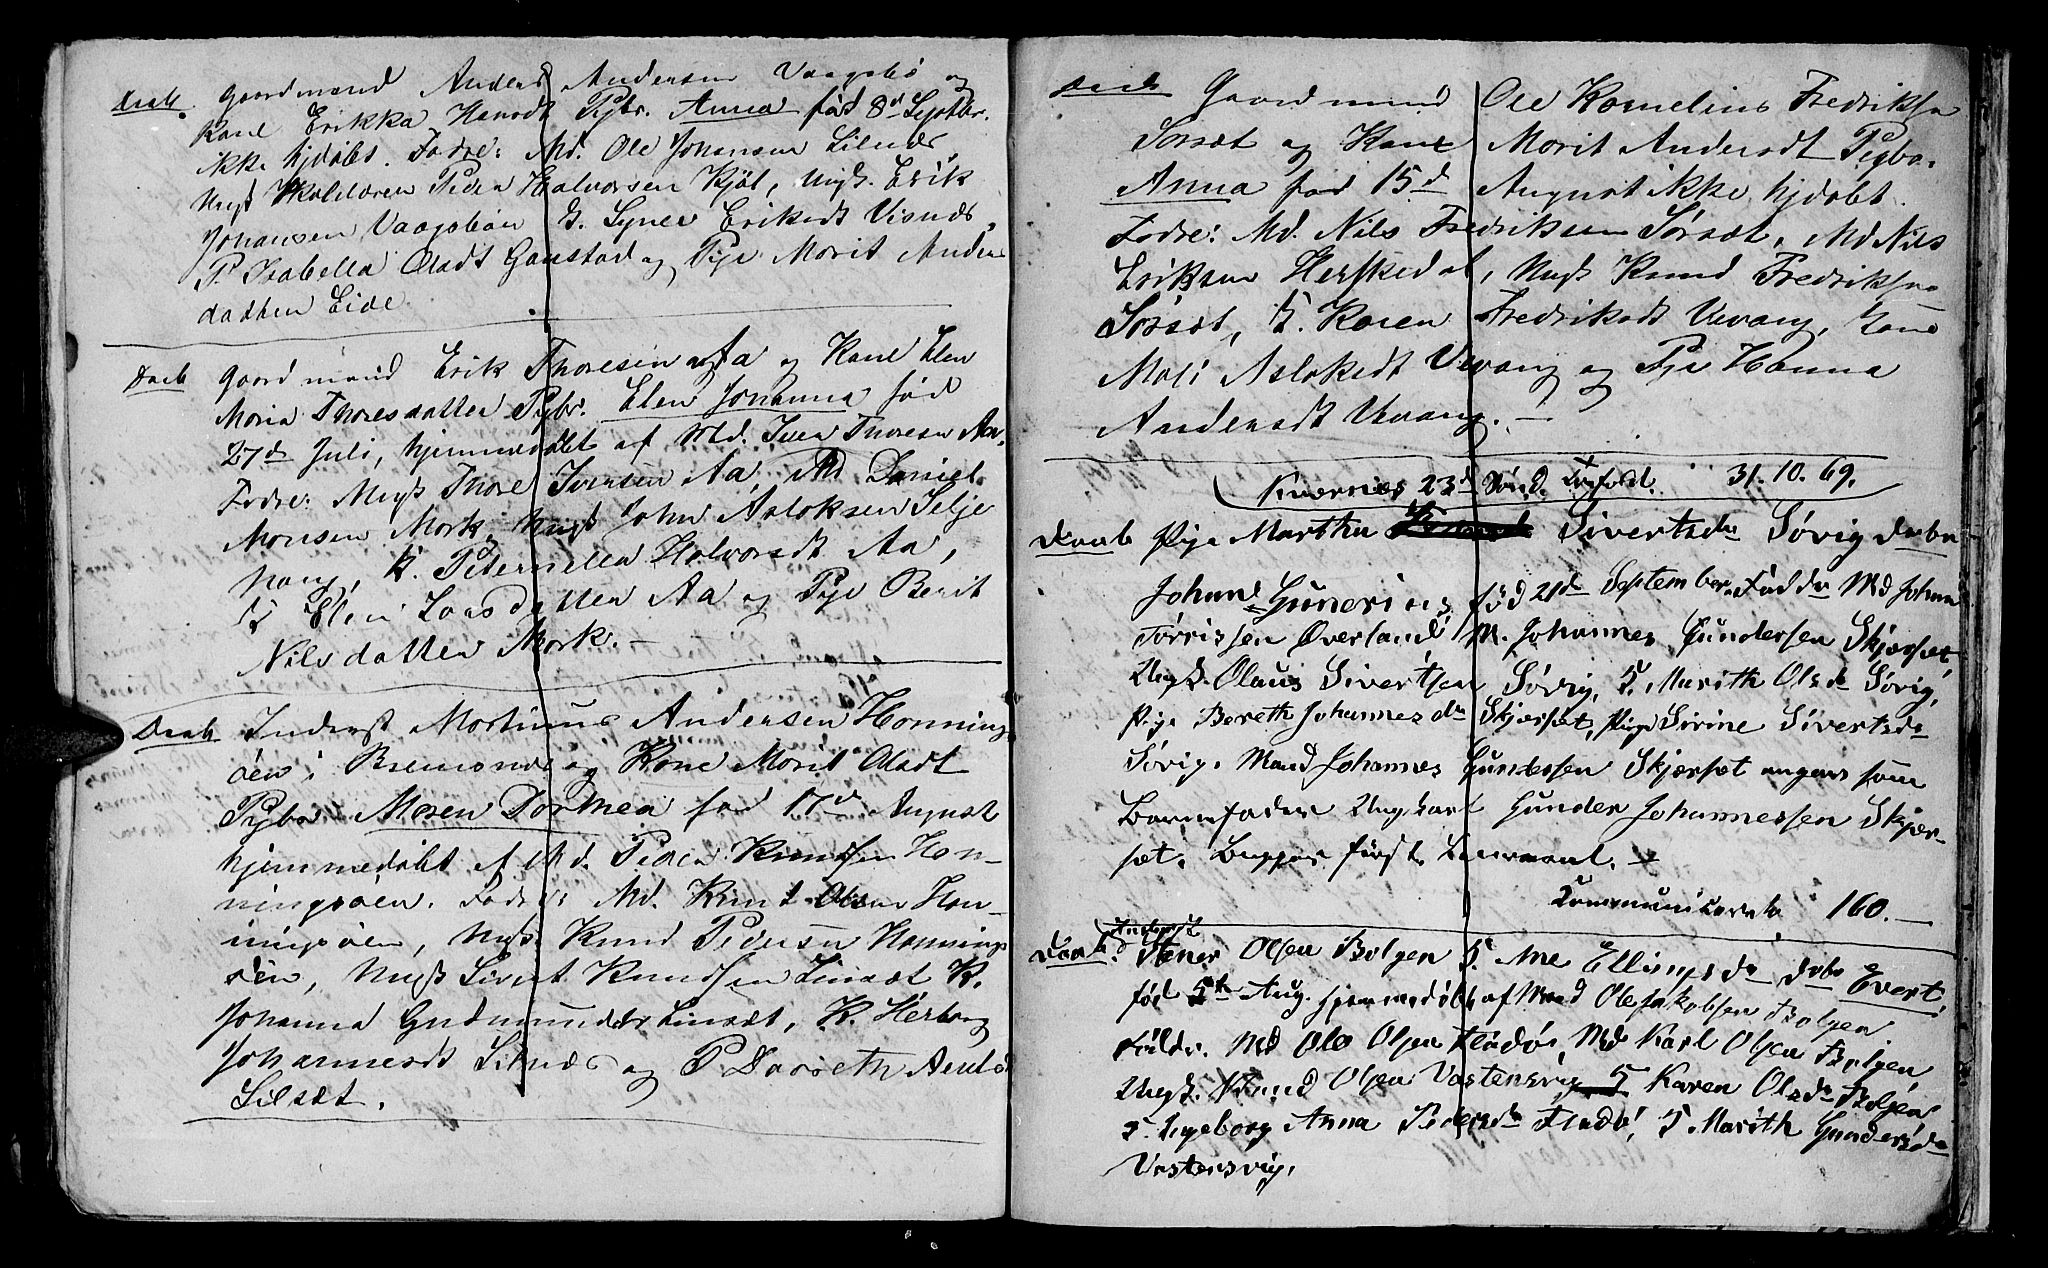 Daab Gaardmand Anders Andersen Vaagsbø og
Kone Erikka Hansdt Pgbr. Anna født 8d Septbr.
ikke hjdøbt. Fadre: Md. Ole Johansen Lilnæs,
Ungk Skolelæren Peder Halvorsen Kjøl, Ungk. Erik
Johansen Vaagsbøen G. Synev Eriksdt Visnæs,
P. Isabella Olsdt Gaustad og Pige Marit Anders
datter Eide.
Daab Gaardmand Erik Thoresen Aa og Kone Elen
Maria Thoresdatter Pgbr. Elen Johanna fød
27de Juli, hjemmedøbt af Md. Iver Thoresen Aa.
Fadre: Ungk Thore Iversen Aa, Md Daniel
Monsen Mork, Ungk John Aslaksen Selje
haug, K. Pedernella Halvorsdt Aa,
K Elen Larsdatter Aa og Pige Berit
Nilsdatter Mork. —
Daab Inderst Martinus Andersen Honnings
øen i Bremsnæs og Kone Marit Olsdt
Pgbr. Maren Dorthea fød 17de August
hjemmedøbt af Md. Peder Knudsen Hon-
ningsøen. Fadre: Md. Knut Olsen Hon-
ningsøen, Ungk. Knud Pedersen Honnings
øen, Ungk Sivert Knudsen Linsæt K.
Johanna Gudmundsdt Linsæt, K. Herborg
Johannesdt Lilnæs og P Dorothe Andsdt
Lilsæt.
Daab Gaardmand Ole Kornelius Fredriksen
Sørsæt og Kone Marit Andersdt Pigba.
Anna fød 15d August ikke hjdøbt.
Fadre: Md. Nils Fredriksen Sørsæt, Md Nils
Eriksen Herskedal, Ungk Knud Fredriksen
Sørsæt, K. Karen Fredriksdt Vevang, Kone
Mali Aslaksdt Vevang og Pige Hanna
Andersdt Vevang. —
Kvernæs 23d Sønd. Trefold. 31.10.69.
Daab Pige Martha Sivertsdr Søvig dabn
Johan Gunerius fød 21de September. Faddr Md Johan
Tørrissen Øverland, M. Johannes Gundersen Skjærset,
Ungk. Olaus Sivertsen Søvig, K. Marith Olsdr Søvig,
Pige Bereth Johannesdr Skjærset, Pige Sirine Sivertsdr
Søvig. Mand Johannes Gundersen Skjærset angav som
Barnefader Ungkarl Gunder Johannessen Skjær-
set. Begges første Leiermaal. —
Communicerede 160. —
Inderst
Daab. Stener Olsen Bolgen K. Ane Ellingsdr dabn Evert,
fød 5te Aug. hjemmedøbt af Mand Ole Jakobsen Bolgen
Faddr. Md Ole Olsen Fladø, Md Karl Olsen Bolgen
Ungk. Knud Olsen Vastensvig K Karen Olsdr Bolgen
K. Ingeborg Anna Pedersdr Fladø, K Marith Gundersdr
Vastensvig.